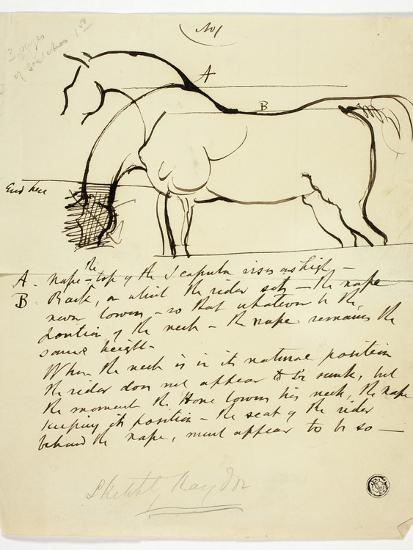 No 1
3 pages
of Sketches 1st
A
B
End here
the
A - nape - top of the Scapula rises as high -
B Back, on which the rider sets - the nape
never lowers - so that whatever be the
position of the neck - the nape remains the
same height -
When the neck is in its natural position
the rider does not appear to be sunk, but
the moment the Horse lowers his neck, the nape
keeping its position - the seat of the rider
behind the nape, must appear to be so -
Sketch by Haydon